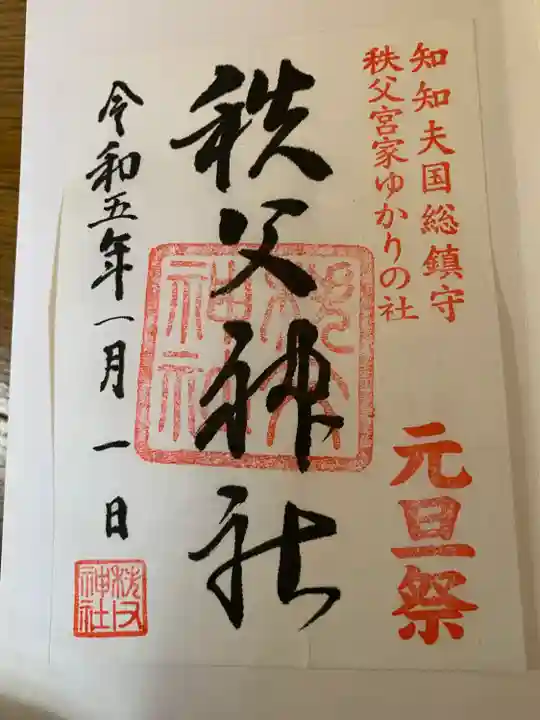 知知夫国総鎮守
秩父宮家ゆかりの社
元旦祭
秩父神社
秩父神社
令和五年一月一日
秩父神社